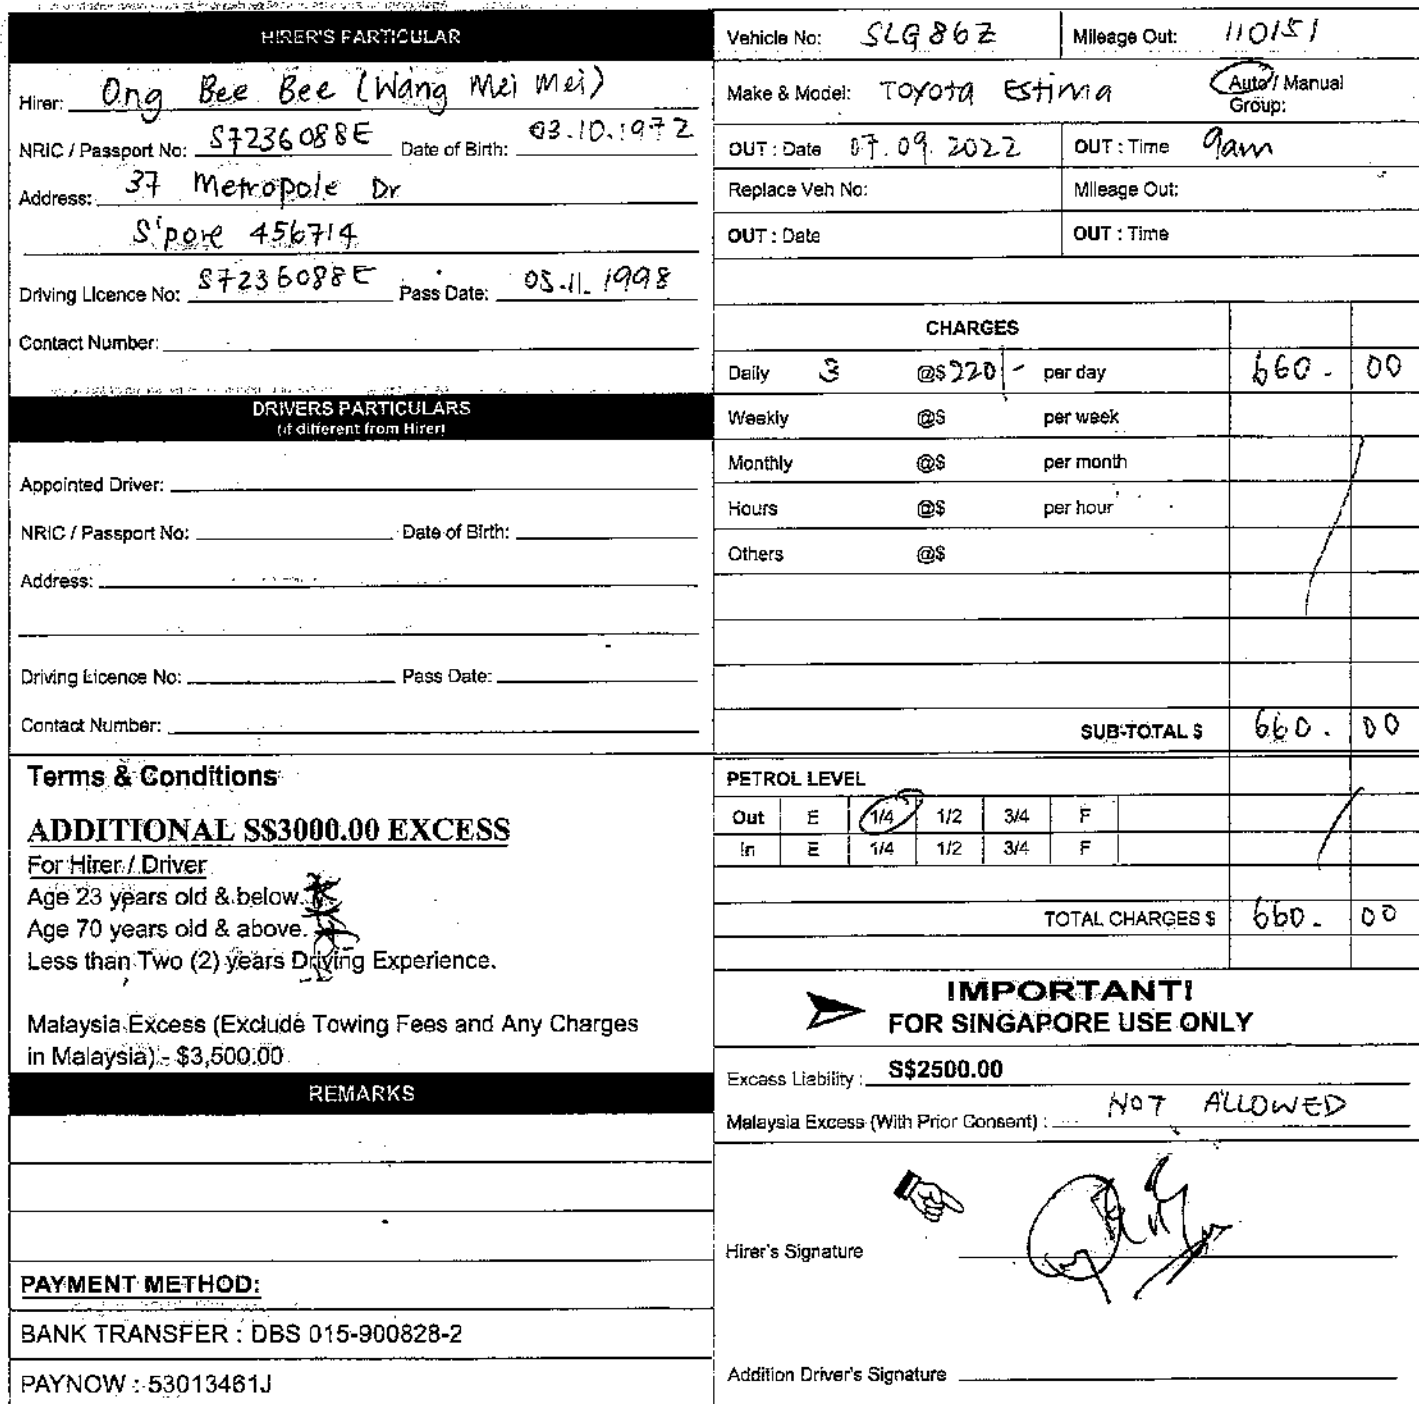 HIRER'S PARTICULAR
Hirer: Ong Bee Bee (Wang Mei Mei)
NRIC / Passport No: S7236088E Date of Birth: 03.10.1972
Address: 37 Metropole Dr
S'pore 456714
Driving Licence No: S7236088E Pass Date: 05.11.1998
Contact Number:
DRIVERS PARTICULARS
(if different from Hirer)
Appointed Driver:
NRIC / Passport No: Date of Birth:
Address:
Driving Licence No: Pass Date:
Contact Number:
Terms & Conditions
ADDITIONAL S$3000.00 EXCESS
For Hirer / Driver
Age 23 years old & below.
Age 70 years old & above.
Less than Two (2) years Driving Experience.
Malaysia Excess (Exclude Towing Fees and Any Charges
in Malaysia) - $3,500.00
REMARKS
PAYMENT METHOD:
BANK TRANSFER : DBS 015-900828-2
PAYNOW : 53013461J
Vehicle No: SLG86Z Mileage Out: 110151
Make & Model: Toyota Estima Auto / Manual
Group:
OUT : Date 07.09.2022 OUT : Time 9am
Replace Veh No: Mileage Out:
OUT : Date OUT : Time
CHARGES
Daily 3 @$220/- per day 660.00
Weekly @$ per week
Monthly @$ per month
Hours @$ per hour
Others @$
SUB-TOTAL $ 660.00
PETROL LEVEL
Out E 1/4 1/2 3/4 F
In E 1/4 1/2 3/4 F
TOTAL CHARGES $ 660.00
IMPORTANT!
FOR SINGAPORE USE ONLY
Excess Liability : S$2500.00
Malaysia Excess (With Prior Consent) : NOT ALLOWED
Hirer's Signature
Addition Driver's Signature